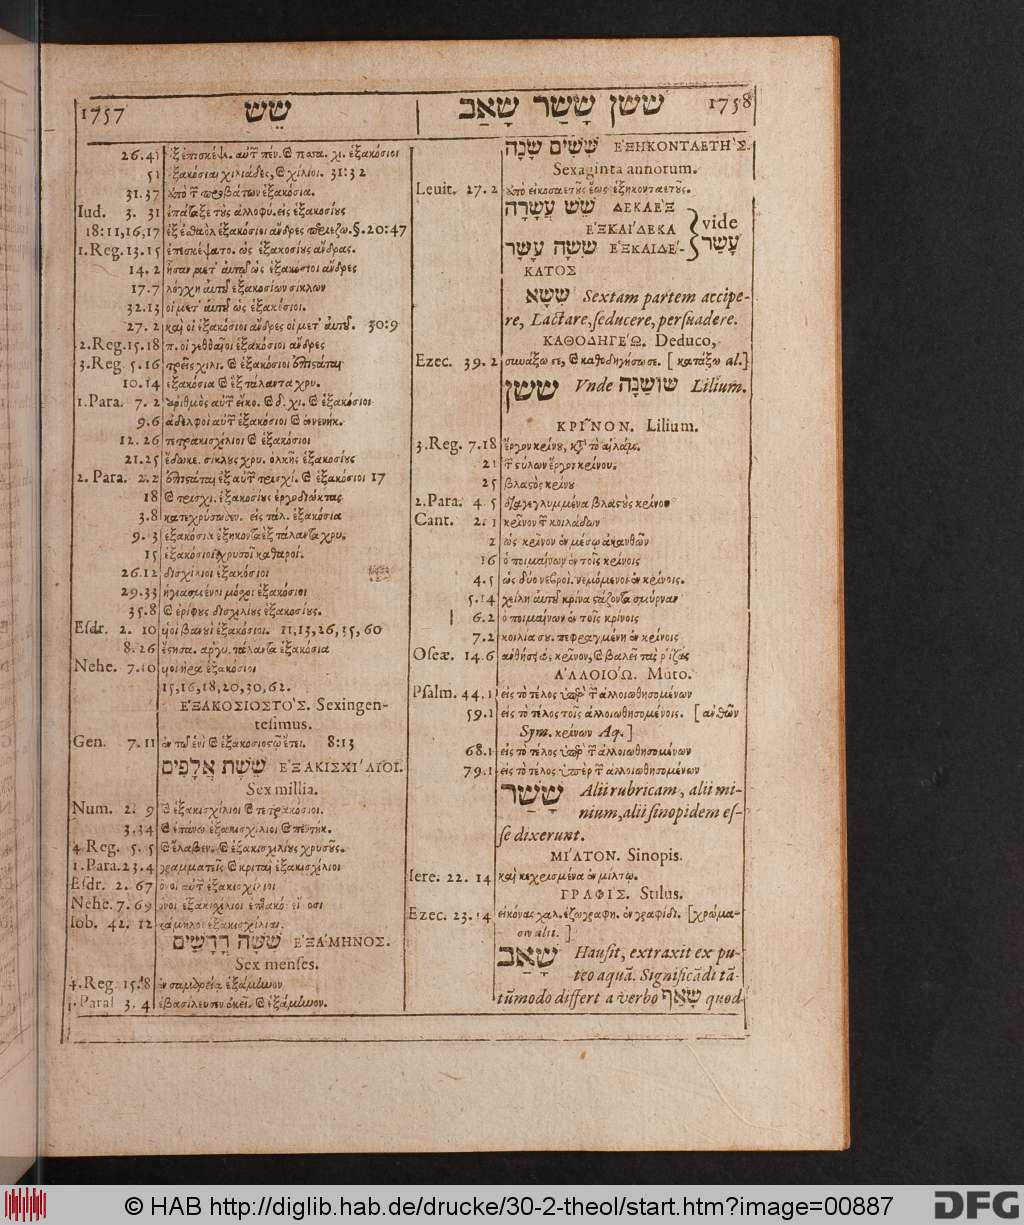 1757 שש
ששן ששר שאב 1758
51 ἑξακόσιαι χιλιάδες, & χίλιοι. 31:32
31.37 ἀπὸ τῶν προβάτων ἑξακόσια.
Iud. 3. 31 ἐπάταξε τοὺς ἀλλοφύ. εἰς ἑξακοσίους
18:11,16,17 20:47
1.Reg. 13.15 ἑξακοσίους ἄνδρας.
14. 2 ἦσαν μετ' αὐτοῦ ὡς ἑξακόσιοι ἄνδρες
17.7 λόγχη αὐτοῦ ἑξακοσίων σίκλων
32.13 οἱ μετ' αὐτοῦ ὡς ἑξακόσιοι.
27. 2 καὶ οἱ ἑξακόσιοι ἄνδρες οἱ μετ' αὐτοῦ. 30:9
2.Reg. 15.18 π. οἱ γεθθαῖοι ἑξακόσιοι ἄνδρες
3.Reg. 5.16 τρεῖς χιλι. & ἑξακόσιοι ἐπιστάται
10.14 ἑξακόσια & ἓξ τάλαντα χρυ.
1.Para. 7. 2 ἀριθμὸς αὐτῶν εἴκο. & δ. χι. & ἑξακόσιοι
9.6 ἀδελφοὶ αὐτῶν ἑξακόσιοι & ἐννενήκ.
12. 26 τετρακισχίλιοι & ἑξακόσιοι
21.25 ἔδωκε. σίκλους χρυ. ὁλκῆς ἑξακοσίους
2. Para. 2.2 ἐπιστάται ἐξ αὐτῶν τρισχί. & ἑξακόσιοι 17
18 & τρισχι. ἑξακοσίους ἐργοδιώκτας
3.8 κατεχρύσωσεν. εἰς τάλ. ἑξακόσια
9. 13 ἑξακόσια ἑξήκοντα ἓξ τάλαντα χρυ.
15 ἑξακόσιοι χρυσοῖ καθαροί.
26.12 δισχίλιοι ἑξακόσιοι
29.33 ἡγιασμένοι μόσχοι ἑξακόσιοι
35.8 & ἐρίφους δισχιλίους ἑξακοσίους.
Esdr. 2. 10 υἱοὶ βανουὶ ἑξακόσιοι. 11,13,26,35,60
8. 26 ἔστησα. ἀργυ. τάλαντα ἑξακόσια
Nehe. 7.10 υἱοὶ ἠρα ἑξακόσιοι
15,16,18,20,30,62.
ΕΞΑΚΟΣΙΟΣΤΟΣ. Sexingen-
tesimus.
Gen. 7. 11 ἐν τῷ ἑνὶ & ἑξακοσιοστῷ ἔτει. 8:13
ששת אלפים ΕΞΑΚΙΣΧΙΛΙΟΙ.
Sex millia.
Num. 2. 9 & ἑξακισχίλιοι & τετρακόσιοι.
3.34 & ἐπάνω ἑξακισχίλιοι & πεντήκ.
4 Reg. 5. 5 & ἔλαβεν. & ἑξακισχιλίους χρυσοῦς.
1.Para. 23.4 γραμματεῖς & κριταὶ ἑξακισχίλιοι
Esdr. 2. 67 ὄνοι αὐτῶν ἑξακισχίλιοι
Nehe. 7. 69 ὄνοι ἑξακισχίλιοι ἑπτακόσιοι εἴκοσι
Iob. 42. 12 κάμηλοι ἑξακισχίλιαι.
ששה חדשים ΕΞΑΜΗΝΟΣ.
Sex menses.
4.Reg. 15.8 ἐν σαμαρείᾳ ἑξάμηνον
1.Paral 3. 4 ἐβασίλευσεν ἐκεῖ. & ἑξάμηνον.
ששים שנה ΕΞΗΚΟΝΤΑΕΤΗΣ.
Sexaginta annorum.
Leuit. 27. 2 ἀπὸ εἰκοσαετοῦς ἕως ἑξηκονταετοῦς.
שש עשרה ΔΕΚΑΕΞ
ΕΞΚΑΙΔΕΚΑ } vide
ששה עשר ΕΞΚΑΙΔΕ- עשר
ΚΑΤΟΣ
ששא Sextam partem accipe-
re, Lactare, seducere, persuadere.
ΚΑΘΟΔΗΓΕΩ. Deduco,
Ezec. 39. 2 συνάξω σε, & καθοδηγήσω σε. [κατάξω al.]
ששן Vnde שושנה Lilium.
ΚΡΙΝΟΝ. Lilium.
3.Reg. 7.18 ἔργον κρίνου, κατὰ τὸ αἰλάμ.
21 τῶν στύλων ἔργον κρίνου.
25 βλαστὸς κρίνου
2.Para. 4. 5 διαγεγλυμμένα βλαστοὺς κρίνου
Cant. 2. 1 κρίνον τῶν κοιλάδων
2 ὡς κρίνον ἐν μέσῳ ἀκανθῶν
16 ὁ ποιμαίνων ἐν τοῖς κρίνοις
4.5 ὡς δύο νεβροὶ. νεμόμενοι ἐν κρίνοις.
5.14 χείλη αὐτοῦ κρίνα στάζοντα σμύρναν
6.2 ὁ ποιμαίνων ἐν τοῖς κρίνοις
7.2 κοιλία σου. πεφραγμένη ἐν κρίνοις
Oseæ. 14.6 ἀνθήσει ὡς κρίνον, & βαλεῖ τὰς ῥίζας
ΑΛΛΟΙΟΩ. Muto.
Psalm. 44.1 εἰς τὸ τέλος ὑπὲρ τῶν ἀλλοιωθησομένων
59.1 εἰς τὸ τέλος τοῖς ἀλλοιωθησομένοις. [ἀνθῶν
Sym. κρίνων Aq.]
68.1 εἰς τὸ τέλος ὑπὲρ τῶν ἀλλοιωθησομένων
79.1 εἰς τὸ τέλος ὑπὲρ τῶν ἀλλοιωθησομένων
ששר Alii rubricam, alii mi-
nium, alii sinopidem es-
se dixerunt.
ΜΙΛΤΟΝ. Sinopis.
Iere. 22. 14 καὶ κεχρισμένα ἐν μίλτῳ.
ΓΡΑΦΙΣ. Stilus.
Ezec. 23.14 εἰκόνας χαλ. ἐζωγραφη. ἐν γραφίδι. [χρώμα-
σιν alii.]
שאב Hausit, extraxit ex pu-
teo aquã. Significãdi tã-
tũmodo differt a verbo שאף quod
© HAB http://diglib.hab.de/drucke/30-2-theol/start.htm?image=00887
DFG